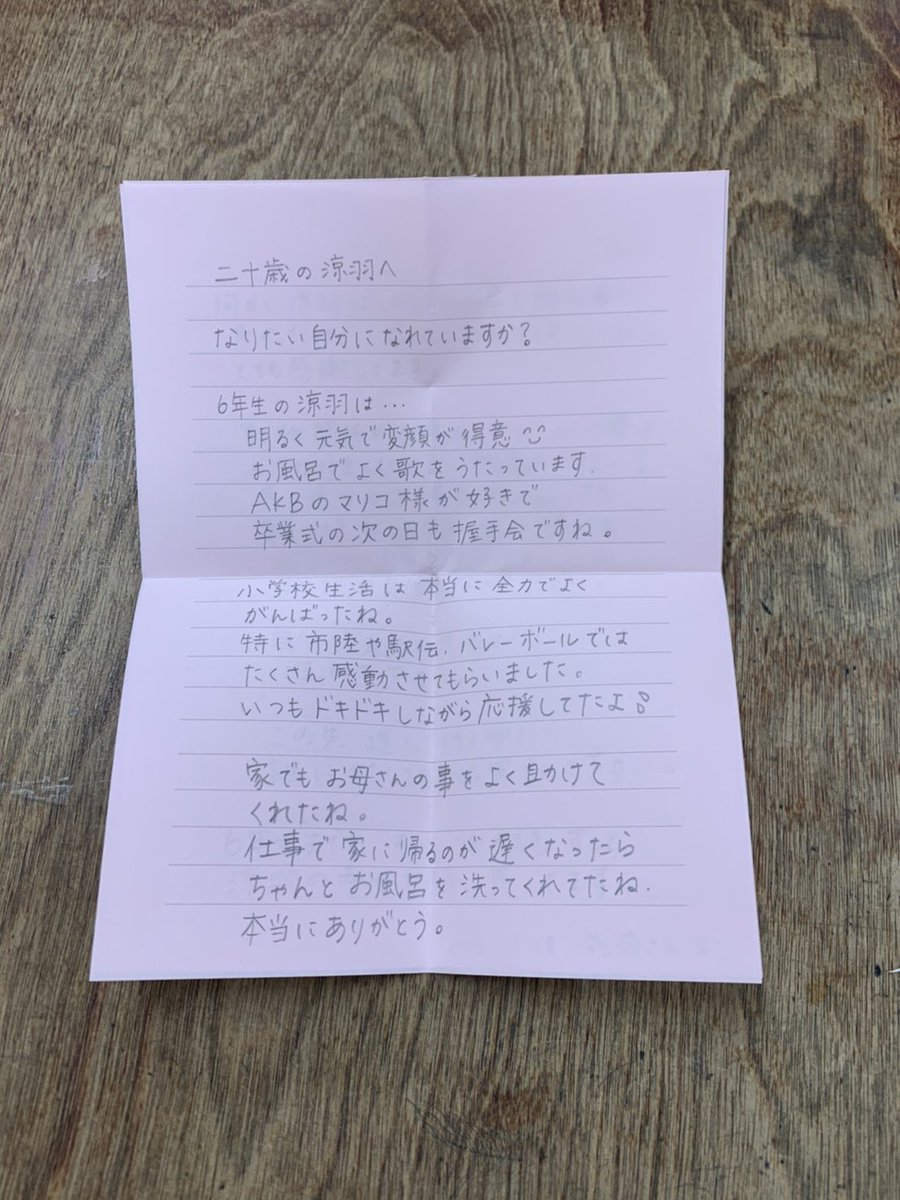 二十歳の涼羽へ
なりたい自分になれていますか?
6年生の涼羽は…
明るく元気で変顔が得意
お風呂でよく歌をうたっています.
AKBのマリコ様が好きで
卒業式の次の日も握手会ですね。
小学校生活は本当に全力でよく
がんばったね。
特に市陸や駅伝、バレーボールでは
たくさん感動させてもらいました。
いつもドキドキしながら応援してたよ
家でもお母さんの事をよく助けて
くれたね。
仕事で家に帰るのが遅くなったら
ちゃんとお風呂を洗ってくれてたね.
本当にありがとう。